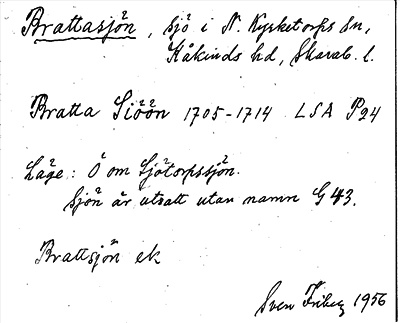 Brattasjön, sjö i N. Kyrketorps sn,
Kåkinds hd, Skarab. l.
Bratta Siöön 1705-1714 LSA P24
Läge: Ö om Sjötorpssjön.
Sjön är utsatt utan namn G 43.
Brattsjön ek
Sven Friberg 1956